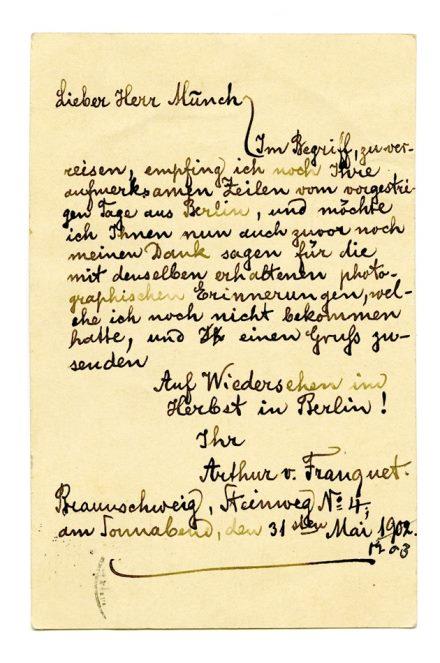 Lieber Herr Munch
Im Begriff, zu ver-
reisen, empfing ich noch Ihre
aufmerksamen Zeilen vom vorgestri-
gen Tage aus Berlin, und möchte
ich Ihnen nun auch zuvor noch
meinen Dank sagen für die
mit denselben erhaltenen photo-
graphischen Erinnerungen, wel-
che ich noch nicht bekommen
hatte, und einen Gruss zu-
senden
Auf Wiedersehen im
Herbst in Berlin!
Ihr
Arthur v. Franquet.
Braunschweig, Steinweg No 4,
am Sonnabend, den 31sten Mai 1902.